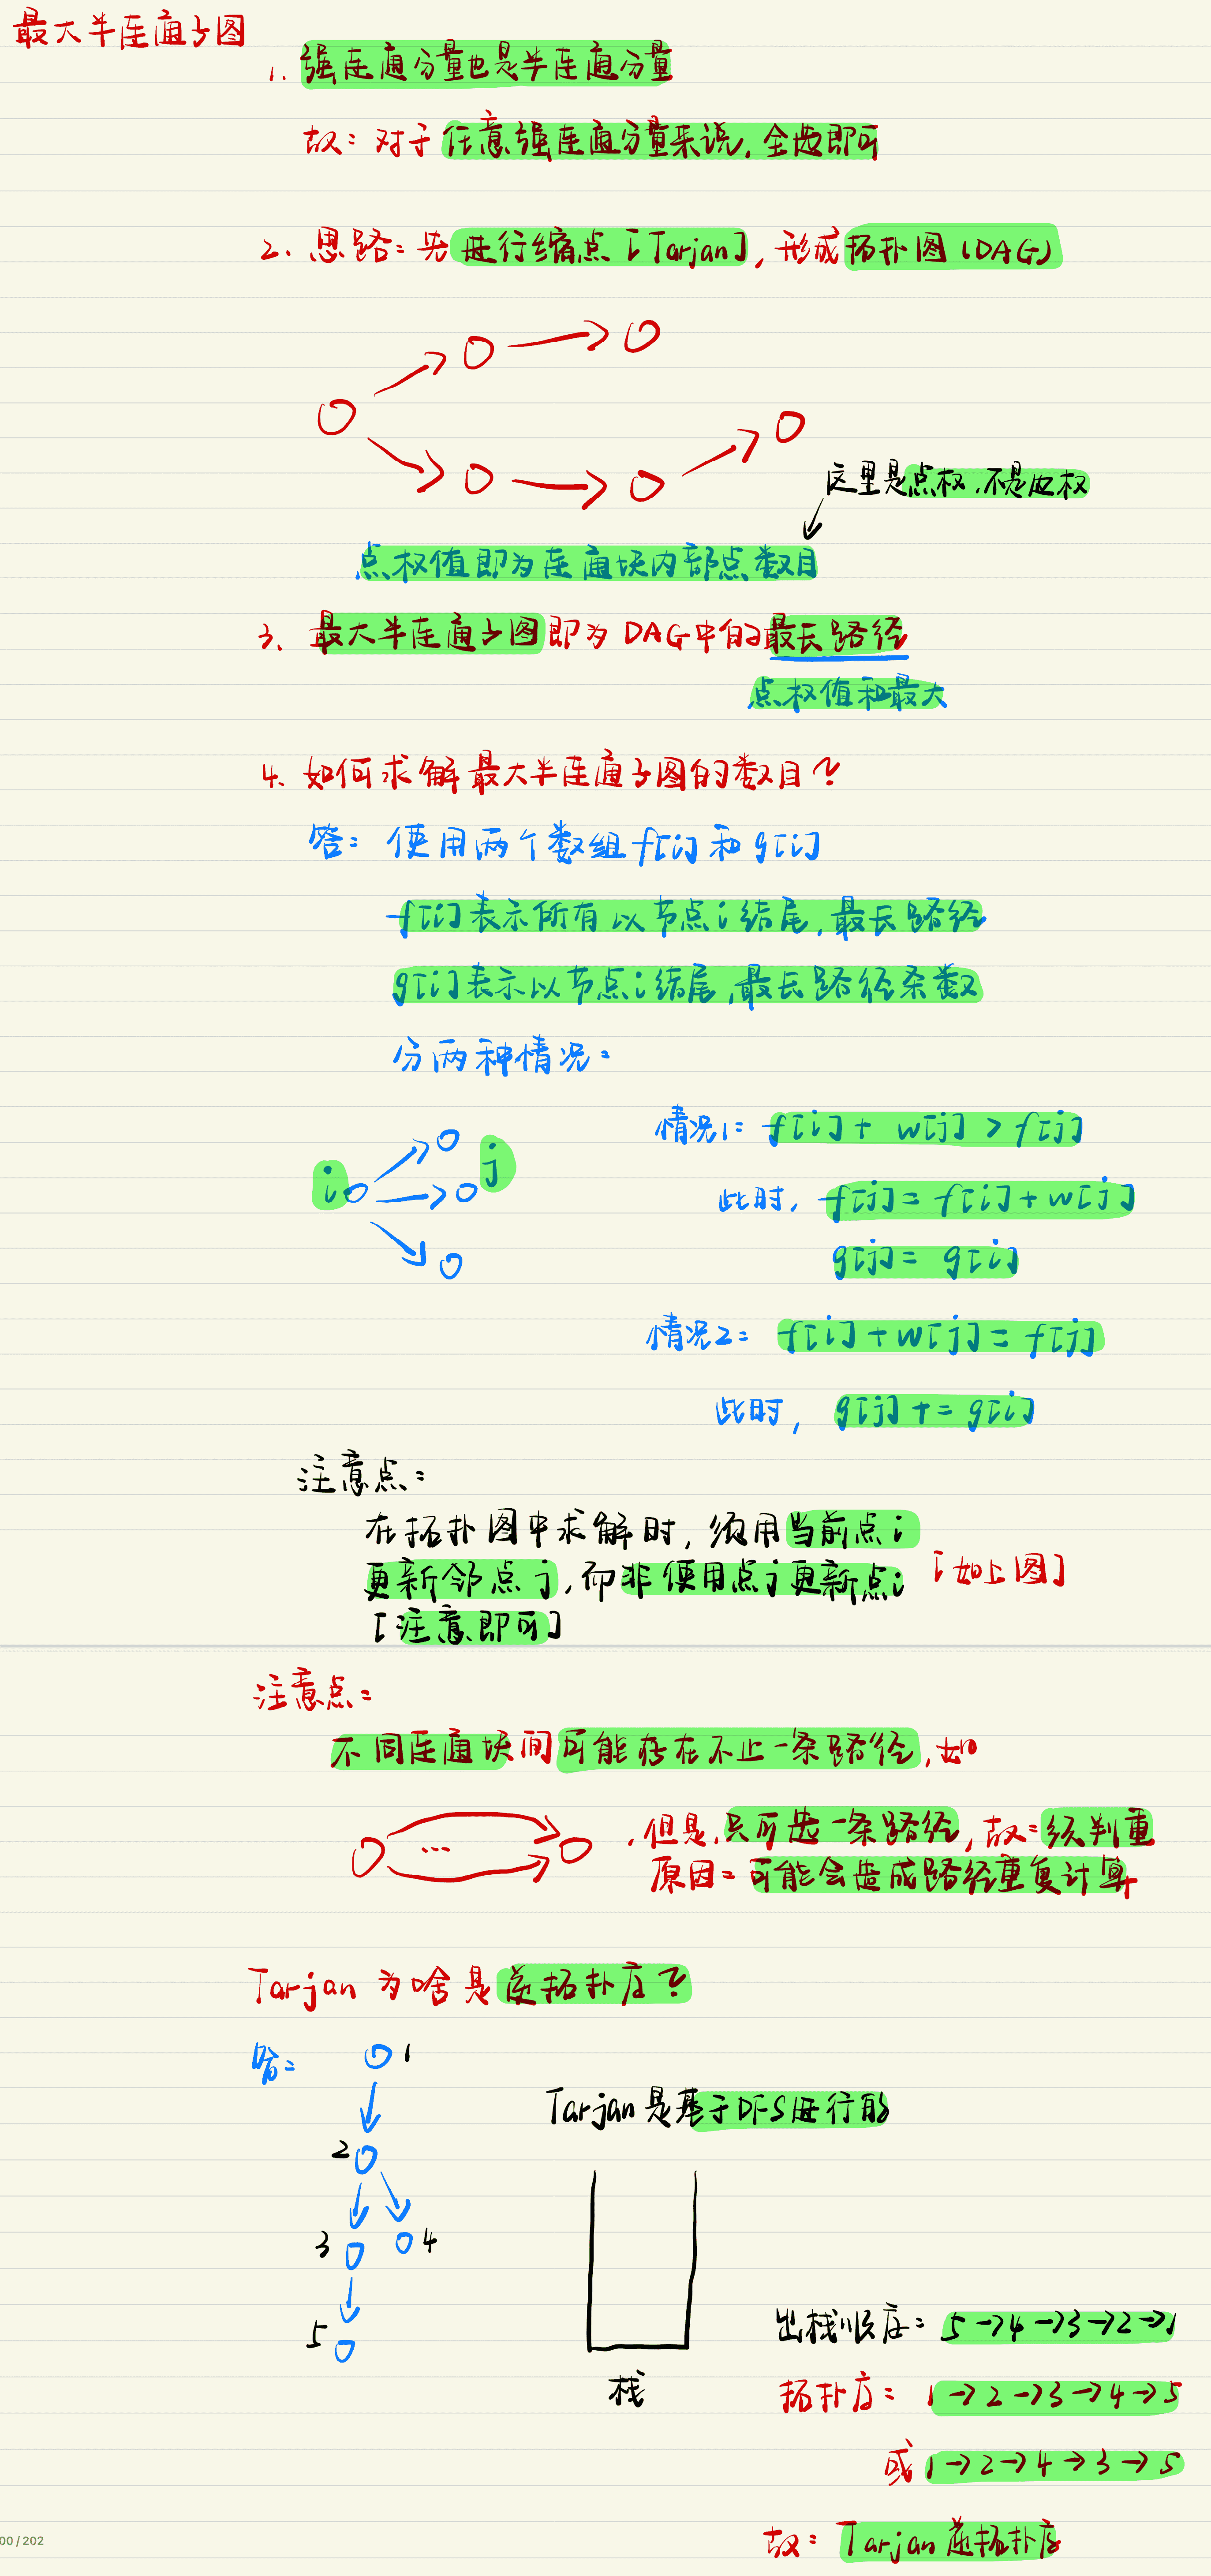 最大半连通子图
1. 强连通分量也是半连通分量
故: 对于任意强连通分量来说, 全选即可
2. 思路: 先进行缩点 [Tarjan], 形成拓扑图 (DAG)
这里是点权, 不是边权
点权值即为连通块内部点数目
3. 最大半连通子图即为 DAG中的最长路径
点权值和最大
4. 如何求解最大半连通子图的数目?
答: 使用两个数组 f[i] 和 g[i]
f[i] 表示所有以节点 i 结尾, 最长路径
g[i] 表示以节点 i 结尾, 最长路径条数
分两种情况:
i
j
情况1: f[i] + w[j] > f[j]
此时, f[j] = f[i] + w[j]
g[j] = g[i]
情况2: f[i] + w[j] = f[j]
此时, g[j] += g[i]
注意点:
在拓扑图中求解时, 须用当前点 i
更新邻点 j, 而非使用点 j 更新点 i [如上图]
[注意即可]
注意点:
不同连通块间可能存在不止一条路径, 如
...
, 但是, 只可选一条路径, 故: 须判重
原因: 可能会造成路径重复计算
Tarjan 为啥是逆拓扑序?
答:
1
2
3
4
5
Tarjan 是基于DFS进行的
栈
出栈顺序: 5→4→3→2→1
拓扑序: 1→2→3→4→5
或 1→2→4→3→5
故: Tarjan 逆拓扑序
00 / 202